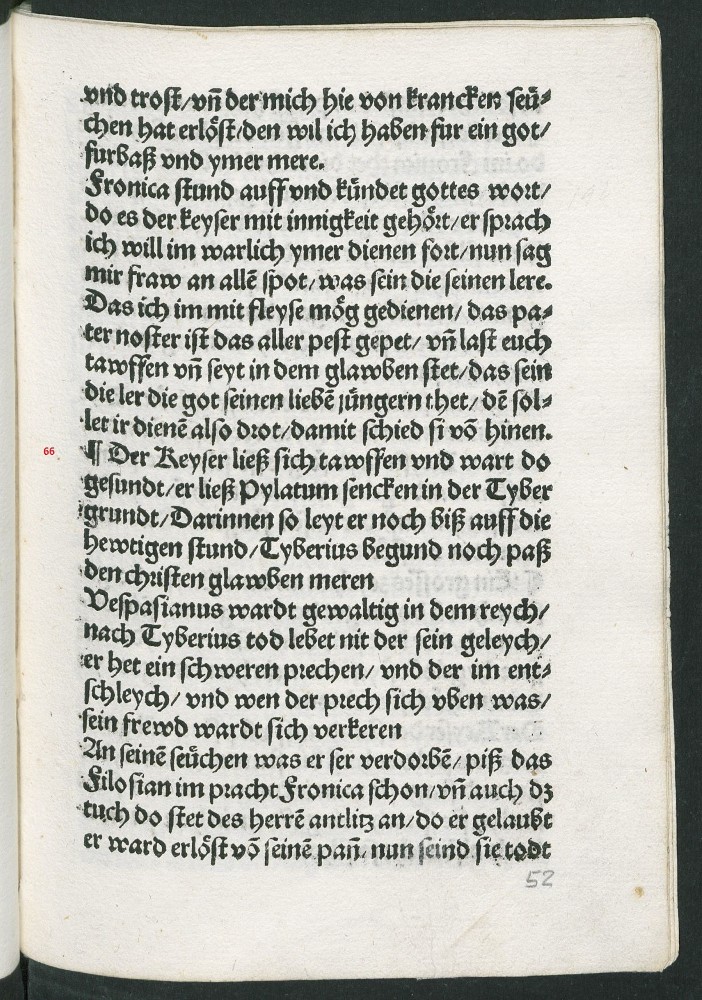 vnd trost/vn̄ der mich hie von krancken seü⸗
chen hat erlöst/den wil ich haben fur ein got/
furbaß vnd ymer mere.
Fronica stund auff vnd kündet gottes wort/
do es der keyser mit innigkeit gehört/er sprach
ich will im warlich ymer dienen fort/nun sag
mir fraw an allē spot/was sein die seinen lere.
Das ich im mit fleyse mög gedienen/das pa⸗
ter noster ist das aller pest gepet/vn̄ last euch
tawffen vn̄ seyt in dem glawben stet/das sein
die ler die got seinen liebē jüngern thet/dē sol⸗
let ir dienē also drot/damit schied si vō hinen.
66 ¶ Der Keyser ließ sich tawffen vnd wart do
gesundt/er ließ Pylatum sencken in der Tyber
grundt/Darinnen so leyt er noch biß auff die
hewtigen stund/Tyberius begund noch paß
den christen glawben meren
Vespasianus wardt gewaltig in dem reych/
nach Tyberius tod lebet nit der sein geleych/
er het ein schweren prechen/vnd der im ent⸗
schleych/vnd wen der prech sich vben was/
sein frewd wardt sich verkeren
An seinē seüchen was er ser verdorbē/piß das
Filosian im pracht Fronica schon/vn̄ auch dz
tuch do stet des herrē antlitz an/do er gelaubt
er ward erlöst vō seinē pan̄/nun seind sie todt
52